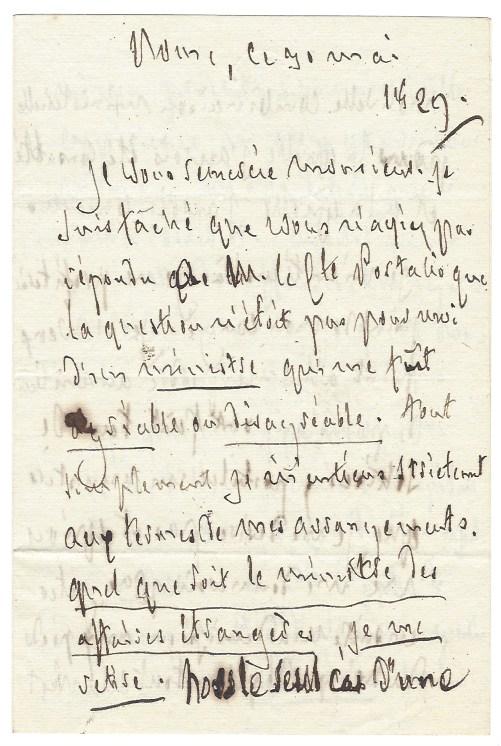 Rome, ce 30 mai
1829.
Je vous remercie monsieur. je
suis fâché que vous n'ayiez pas
répondu à M. le Cte Portalis que
la question n'étoit pas pour moi
d'un ministre qui me fût
agréable ou désagréable. tout
simplement je m'en tiens strictement
aux termes de mes arrangements.
quel que soit le ministre des
affaires étrangères, je me
retire. hors le seul cas d'une